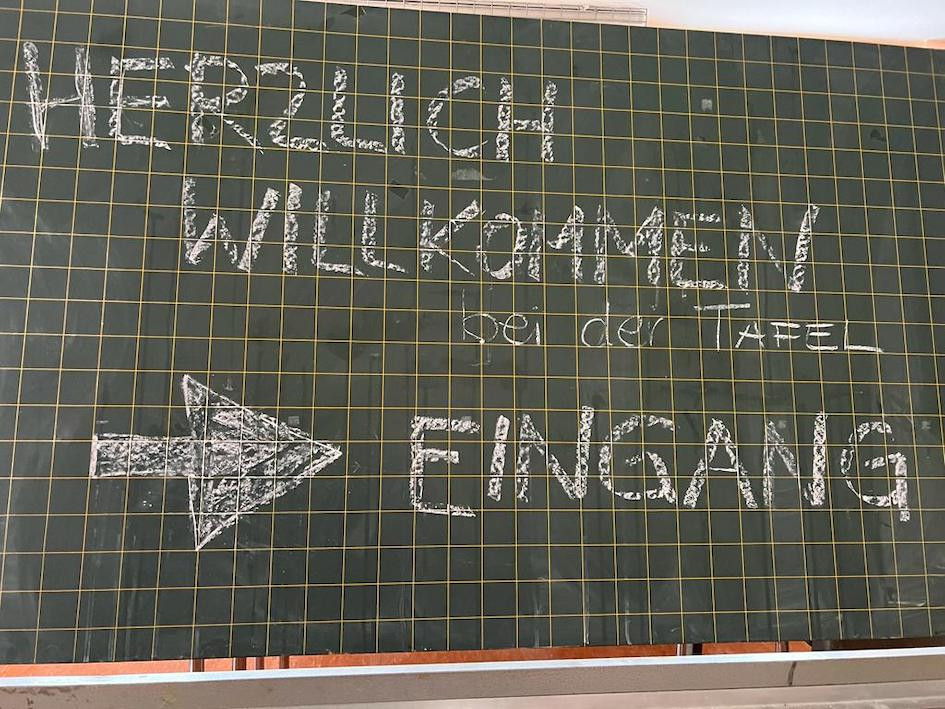 HERZLICH
WILLKOMMEN
bei der TAFEL
EINGANG